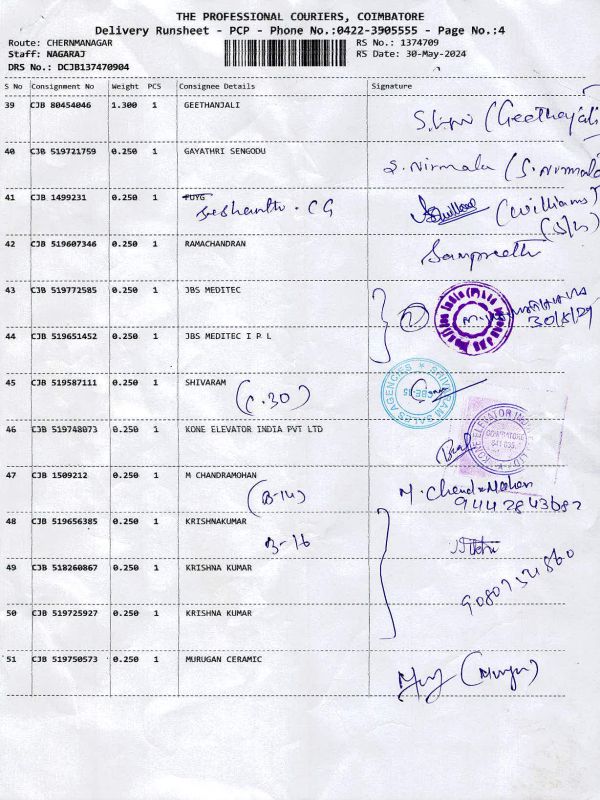 THE PROFESSIONAL COURIERS, COIMBATORE
Delivery Runsheet - PCP - Phone No.:0422-3905555 - Page No.:4
Route: CHERNMANAGAR RS No.: 1374709
Staff: NAGARAJ RS Date: 30-May-2024
DRS No.: DCJB137470904
S No Consignment No Weight PCS Consignee Details Signature
39 CJB 80454046 1.300 1 GEETHANJALI (Geethanjali
40 CJB 519721759 0.250 1 GAYATHRI SENGODU S. Nirmala (S. Nirmala
41 CJB 1499231 0.250 1 FUYG (Williams)
CG (S/G)
42 CJB 519607346 0.250 1 RAMACHANDRAN Sampreeth
43 CJB 519772585 0.250 1 JBS MEDITEC 2
30/5/24
44 CJB 519651452 0.250 1 JBS MEDITEC I P L
45 CJB 519587111 0.250 1 SHIVARAM SHIVARAM SALES AGENCIES CBE-35
(C.30)
46 CJB 519748073 0.250 1 KONE ELEVATOR INDIA PVT LTD KONE ELEVATOR INDIA COIMBATORE
47 CJB 1509212 0.250 1 M CHANDRAMOHAN M. Chandramohan
(B-14) 9442843682
48 CJB 519656385 0.250 1 KRISHNAKUMAR
B-16
49 CJB 518260867 0.250 1 KRISHNA KUMAR
50 CJB 519725927 0.250 1 KRISHNA KUMAR
51 CJB 519750573 0.250 1 MURUGAN CERAMIC (Muruga)